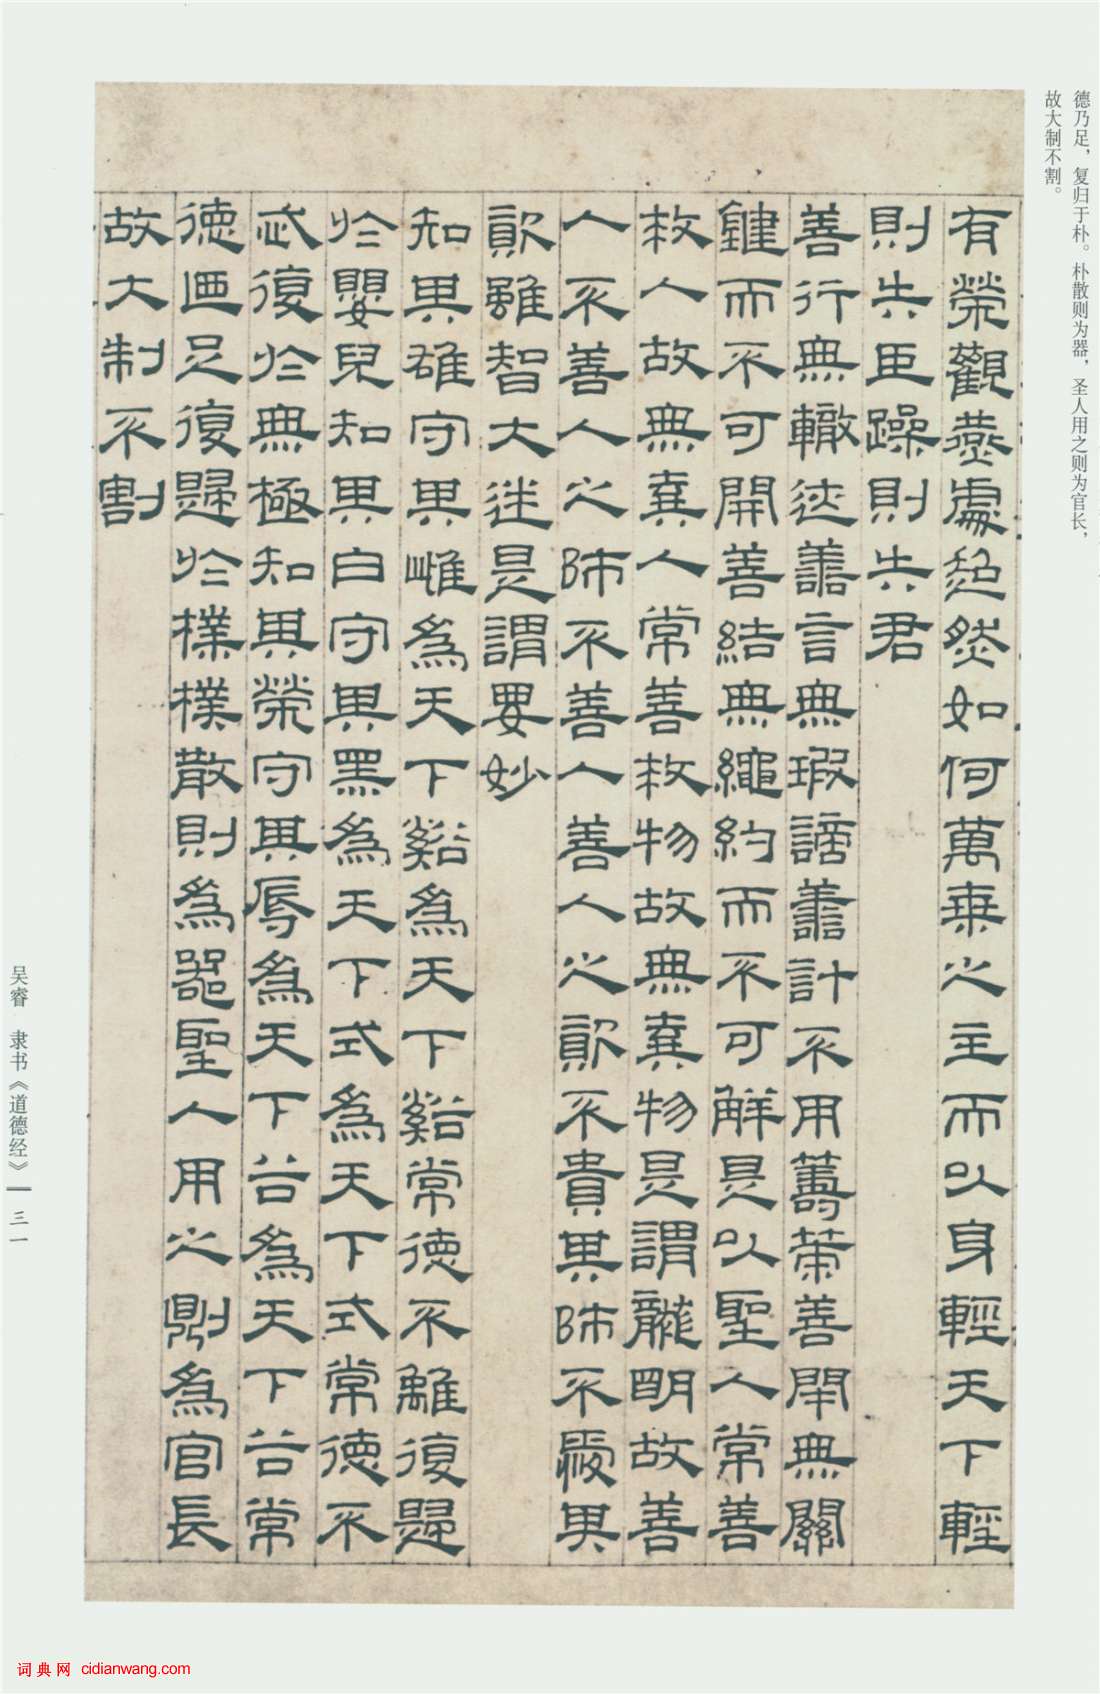 德乃足，复归于朴。朴散则为器，圣人用之则为官长，
故大制不割。
有榮觀燕處超然如何萬乗之主而以身輕天下輕
則失臣躁則失君
善行無轍迹善言無瑕謫善計不用籌策善閉無關
鍵而不可開善結無繩約而不可解是以聖人常善
救人故無棄人常善救物故無棄物是謂襲明故善
人不善人之師不善人善人之資不貴其師不愛其
資雖智大迷是謂要妙
知其雄守其雌為天下谿為天下谿常德不離復歸
於嬰兒知其白守其黑為天下式為天下式常德不
忒復於無極知其榮守其辱為天下谷為天下谷常
德廼足復歸於樸樸散則為器聖人用之則為官長
故大制不割
吴睿 隶书《道德经》 三一
词典网 cidianwang.com